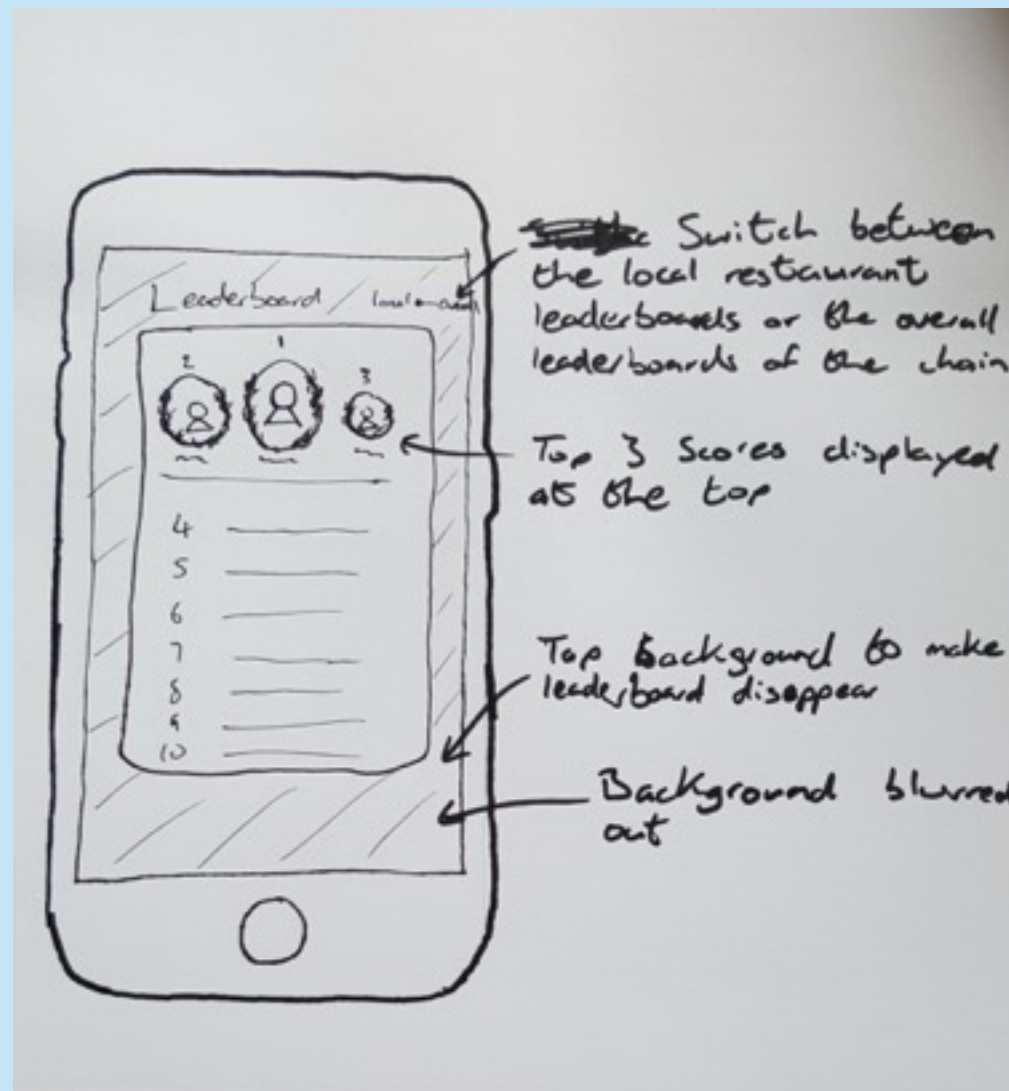 Leaderboard local
1
2
3
4
5
6
7
8
9
10
Switch between
the local restaurant
leaderboards or the overall
leaderboards of the chain
Top 3 Scores displayed
at the top
Tap background to make
leaderboard disappear
Background blurred
out